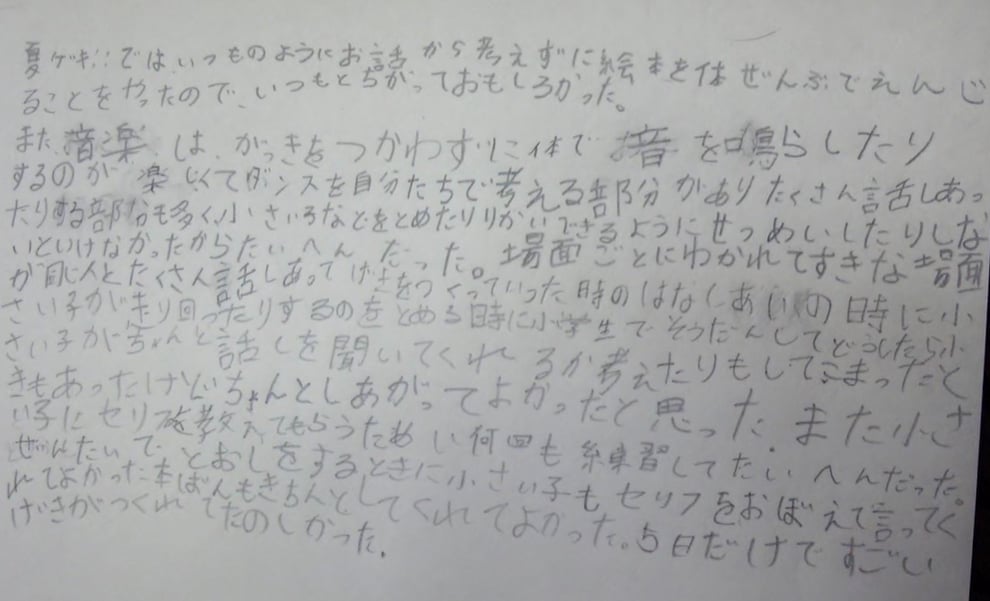 夏ゲキ!!では、いつものようにお話から考えずに絵本を体ぜんぶでえんじ
ることをやったので、いつもとちがっておもしろかった。
また、音楽は、がっきをつかわずに体で音を鳴らしたり
するのが楽しくてダンスを自分たちで考える部分がありたくさん話しあっ
たりする部分も多く、小さいろなとをとめたりりかいできるようにせつめいしたりしな
いといけなかったからたいへんだった。場面ごとにわかれてすきな場面
が同じ人とたくさん話しあってげきをつくっていった時のはなしあいの時に小
さい子が走り回ったりするのをとめる時に小学生でそうだんしてどうしたら小
さい子がちゃんと話しを聞いてくれるか考えたりもしてこまったと
きもあったけどちゃんとしあがってよかったと思った。また小さ
い子にセリフを教えてもらうためい何回も練習してたいへんだった。
ぜんたいで、とおしをするときに小さい子もセリフをおぼえて言ってく
れてよかった本ばんもきちんとしてくれてよかった。5日だけですごい
げきがつくれてたのしかった.